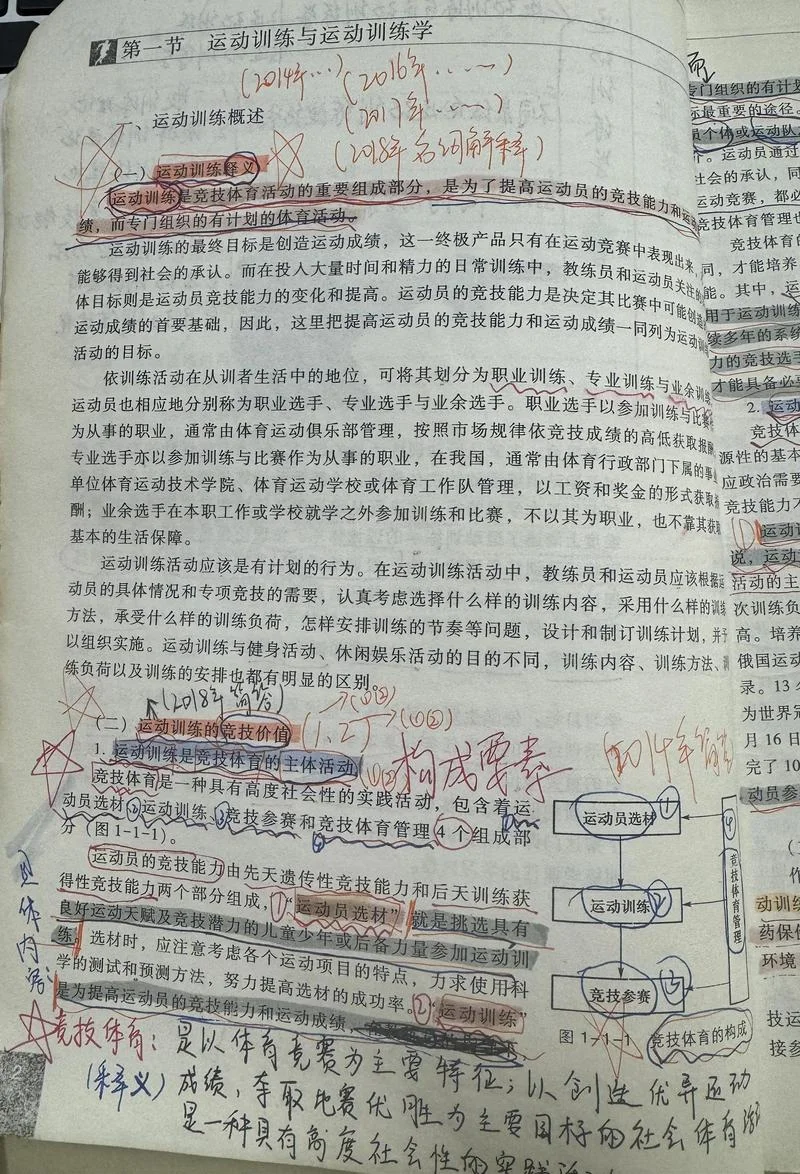 第一节 运动训练与运动训练学
(2014年...) (2016年......)
一、运动训练概述
(2017年......)
(2018年名词解释)
(一)运动训练释义
运动训练是竞技体育活动的重要组成部分，是为了提高运动员的竞技能力和运动
绩，而专门组织的有计划的体育活动。
运动训练的最终目标是创造运动成绩，这一终极产品只有在运动竞赛中表现出来，
能够得到社会的承认。而在投入大量时间和精力的日常训练中，教练员和运动员关注的
体目标则是运动员竞技能力的变化和提高。运动员的竞技能力是决定其比赛中可能创造
运动成绩的首要基础，因此，这里把提高运动员的竞技能力和运动成绩一同列为运动训
活动的目标。
依训练活动在从训者生活中的地位，可将其划分为职业训练、专业训练与业余训练
运动员也相应地分别称为职业选手、专业选手与业余选手。职业选手以参加训练与比赛
为从事的职业，通常由体育运动俱乐部管理，按照市场规律依竞技成绩的高低获取报酬
专业选手亦以参加训练与比赛作为从事的职业，在我国，通常由体育行政部门下属的事
单位体育运动技术学院、体育运动学校或体育工作队管理，以工资和奖金的形式获取
酬；业余选手在本职工作或学校就学之外参加训练和比赛，不以其为职业，也不靠其获取
基本的生活保障。
运动训练活动应该是有计划的行为。在运动训练活动中，教练员和运动员应该根据运
动员的具体情况和专项竞技的需要，认真考虑选择什么样的训练内容，采用什么样的训练
方法，承受什么样的训练负荷，怎样安排训练的节奏等问题，设计和制订训练计划，并予
以组织实施。运动训练与健身活动、休闲娱乐活动的目的不同，训练内容、训练方法、训
练负荷以及训练的安排也都有明显的区别。
(2018年简答)
(二)运动训练的竞技价值
1. 运动训练是竞技体育的主体活动
构成要素
2014年简答
竞技体育是一种具有高度社会性的实践活动，包含着运
动员选材、运动训练、竞技参赛和竞技体育管理4个组成部
分（图1-1-1）。
运动员的竞技能力由先天遗传性竞技能力和后天训练获
得性竞技能力两个部分组成，①“运动员选材”就是挑选具有
良好运动天赋及竞技潜力的儿童少年或后备力量参加运动训
练。选材时，应注意考虑各个运动项目的特点，力求使用科
学的测试和预测方法，努力提高选材的成功率。②“运动训练”
是为提高运动员的竞技能力和运动成绩，
具体内容：
运动员选材
运动训练
竞技参赛
竞技体育管理
图1-1-1 竞技体育的构成
竞技体育：是以体育竞赛为主要特征；以创造优异运动
(释义)成绩，夺取比赛优胜为主要目标的社会体育活
是一种具有高度社会性的实践活
专门组织的有计划
标最重要的途径。
员个体或运动队
。运动员通过
社会的承认，同
运动竞赛，都必
竞技体育管理也
竞技体育的
同，才能培养
能。其中，运
用于运动训练
续多年的系统
力的竞技选手
才能具备必要
2. 运动
竞技体
源性的基本
应政治需要
竞技能力不
运动
说，运动
活动的主
次训练负
高。培养
俄国运动
录。13名
为世界冠
月16日
完了10
动员参
动训练
药保健
环境
技运
接参